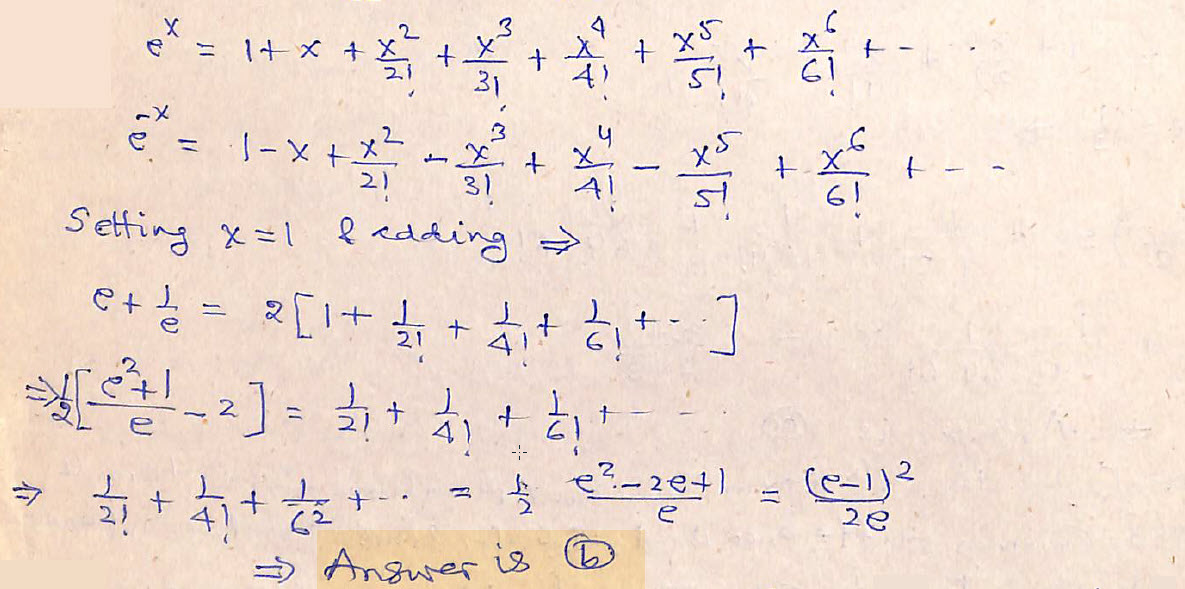 e^x = 1 + x + x^2/2! + x^3/3! + x^4/4! + x^5/5! + x^6/6! + - .
e^-x = 1 - x + x^2/2! - x^3/3! + x^4/4! - x^5/5! + x^6/6! + - - -
Setting x = 1 & adding ⇒
e + 1/e = 2[1 + 1/2! + 1/4! + 1/6! + - - ]
⇒ 1/2[(e^2+1)/e - 2] = 1/2! + 1/4! + 1/6! + - - -
⇒ 1/2! + 1/4! + 1/6^2 + - .. = 1/2 (e^2-2e+1)/e = (e-1)^2/2e
⇒ Answer is (b)